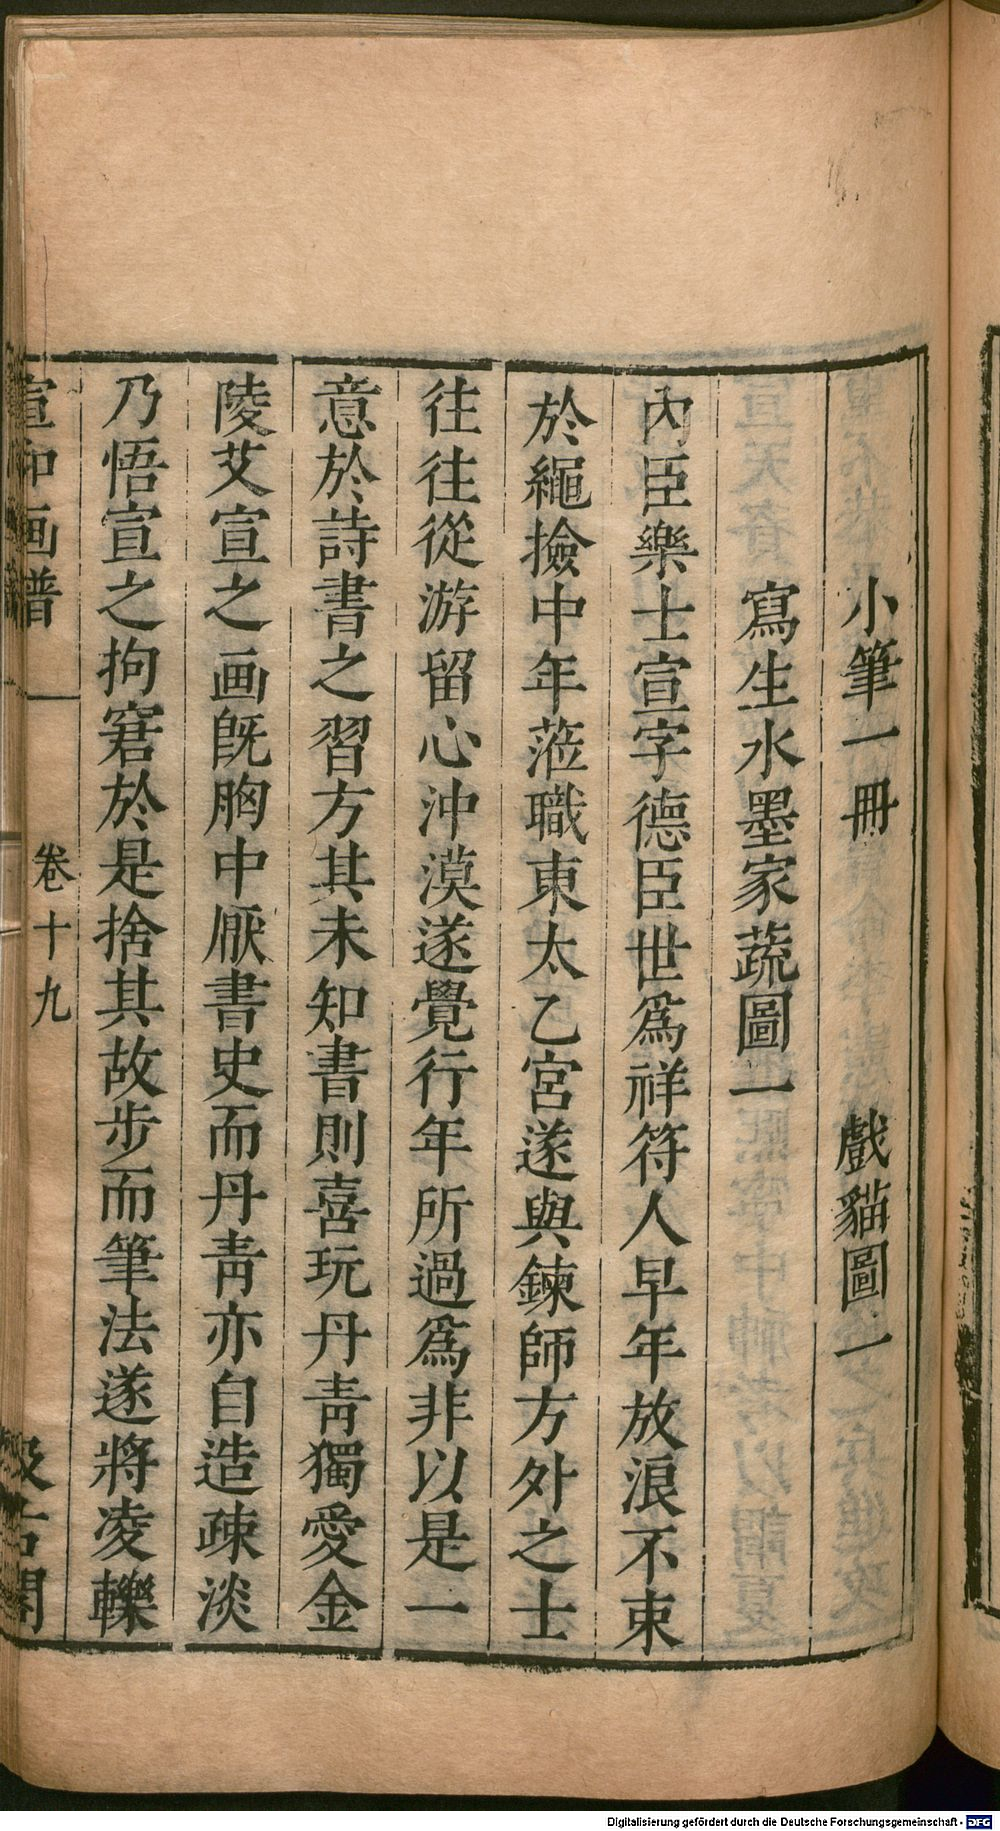 小筆一冊　戲貓圖一
寫生水墨家蔬圖一
內臣樂士宣字德臣世爲祥符人早年放浪不束
於繩撿中年蒞職東太乙宮遂與鍊師方外之士
往往從游留心沖漠遂覺行年所過爲非以是一
意於詩書之習方其未知書則喜玩丹青獨愛金
陵艾宣之画旣胸中厭書史而丹青亦自造疎淡
乃悟宣之拘窘於是捨其故步而筆法遂將凌轢
宣和画譜　卷十九　汲古閣
Digitalisierung gefördert durch die Deutsche Forschungsgemeinschaft - DFG